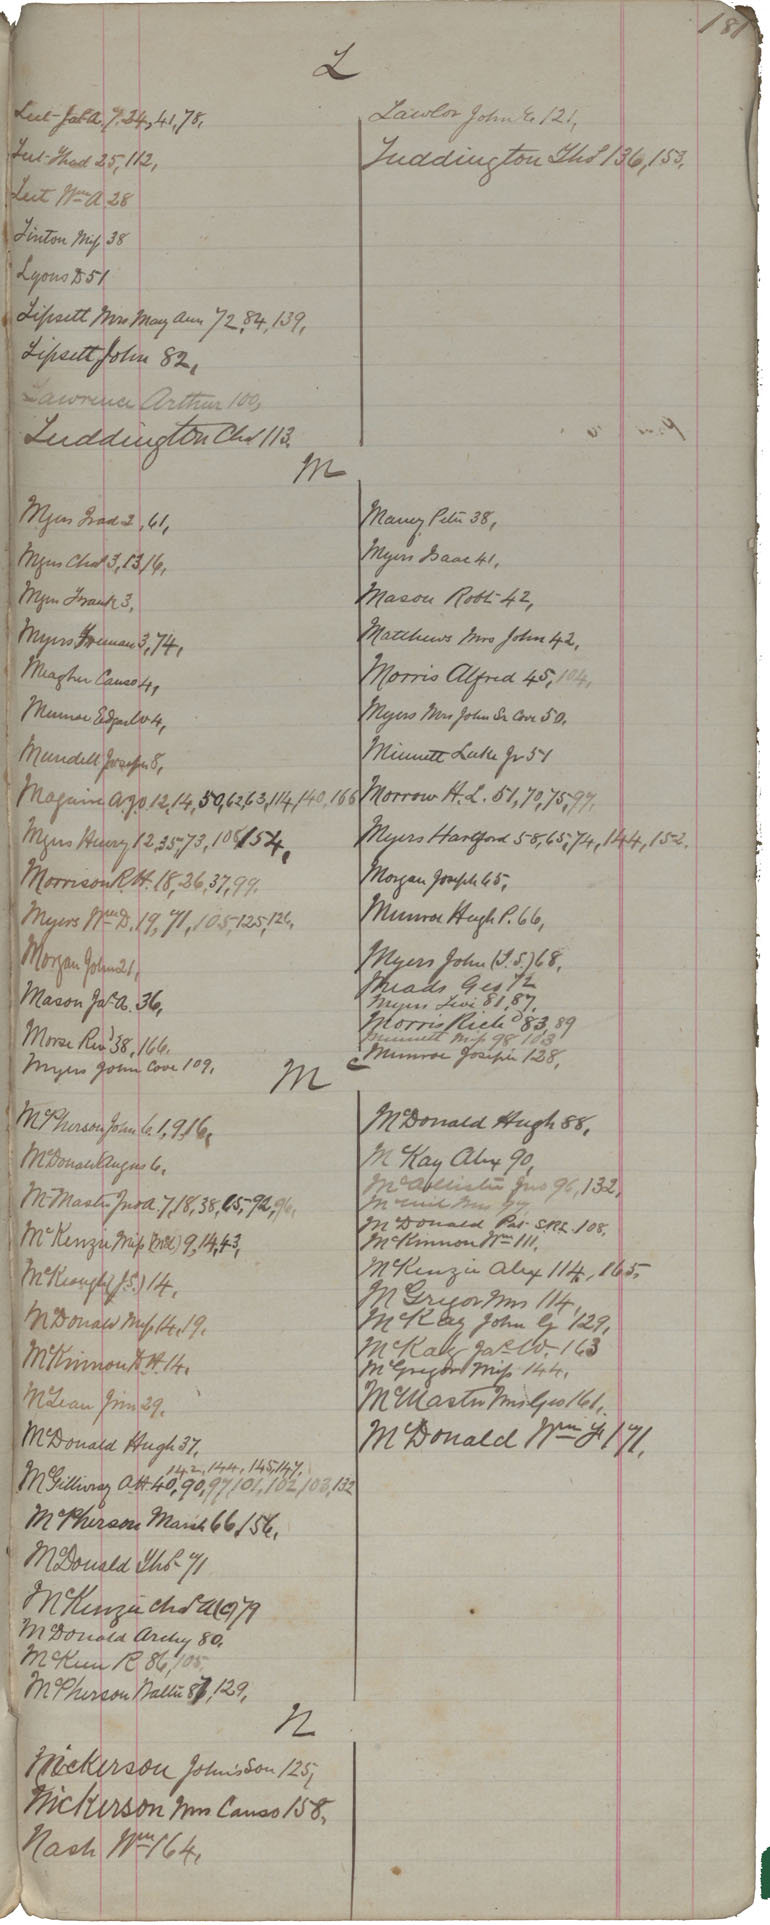 181
L
Leet Jas A. 7, 24, 41, 78,
Leet Thad 25, 112,
Leet Wm A. 28
Linton Miss 38
Lyons D 51
Lipsett Mrs Mary Ann 72, 84, 139,
Lipsett John 82,
Lawrence Arthur 100,
Luddington Chas 113.
Lawlor John E. 121,
Luddington Thos 136, 153.
M
Myers 2, 61,
Myers Chas 3, 13, 16,
Myers Frank 3,
Myers Freeman 3, 74,
Meagher Canso 4,
Munroe Edgar W 4,
Mundell Joseph 8,
Maguire A.J.O. 12, 14, 50, 62, 63, 114, 140, 166
Myers Henry 12, 35, 73, 108, 154,
Morrison R H. 18, 26, 37, 99.
Myers Wm D. 19, 71, 105, 125, 126,
Morgan John 21,
Mason Jas A. 36,
Morse Revd 38, 166.
Myers John Cove 109.
Peter 38,
Myers Isaac 41,
Mason Robt 42,
Matthews Mrs John 42,
Morris Alfred 45, 104,
Myers Mrs John Sr Cove 50.
Minnett Luke Jr 51
Morrow H. L. 51, 70, 75, 97,
Myers Hartford 58, 65, 74, 144, 152.
Morgan Joseph 65,
Munroe Hugh P. 66,
Myers John (T.S.) 68,
Meads Geo 72
Myers Levi 81, 87,
Morris Richd 83, 89
Minnett Miss 98, 103
Munroe Joseph 128,
Mc
McPherson John C. 1, 9, 16,
McDonald Angus 6,
McMaster Jno A. 7, 18, 38, 65, 92, 96,
McKenzie Miss 9, 14, 43,
McKeough (J.S.) 14,
McDonald Miss 14, 19.
McKinnon D. H. 14.
McLean Jim 29.
McDonald Hugh 37,
142, 144, 145, 147,
McGillivray A. H. 40, 90, 97, 101, 102, 103, 132
McPherson Marsh 66, 156,
McDonald Thos 71
McKenzie Chas A (C) 79
McDonald Archy 80.
McKeen R 86, 105,
McPherson Walter 87, 129,
McDonald Hugh 88,
McKay Alex 90,
McAllister Jno 96, 132,
McDonald Pat S.R.L. 108,
McKinnon Wm 111,
McKenzie Alex 114, 165,
McGregor Mrs 114,
McKay John G 129,
McKay Jas W. 163
McGregor Miss 144,
McMaster Mrs Geo 161,
McDonald Wm F. 171,
N
Nickerson John's Son 125,
Nickerson Mrs Canso 158,
Nash Wm 164,